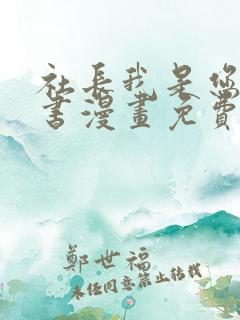 社長我是您
書漫畫免費
鄭世福
未經同意禁止轉載